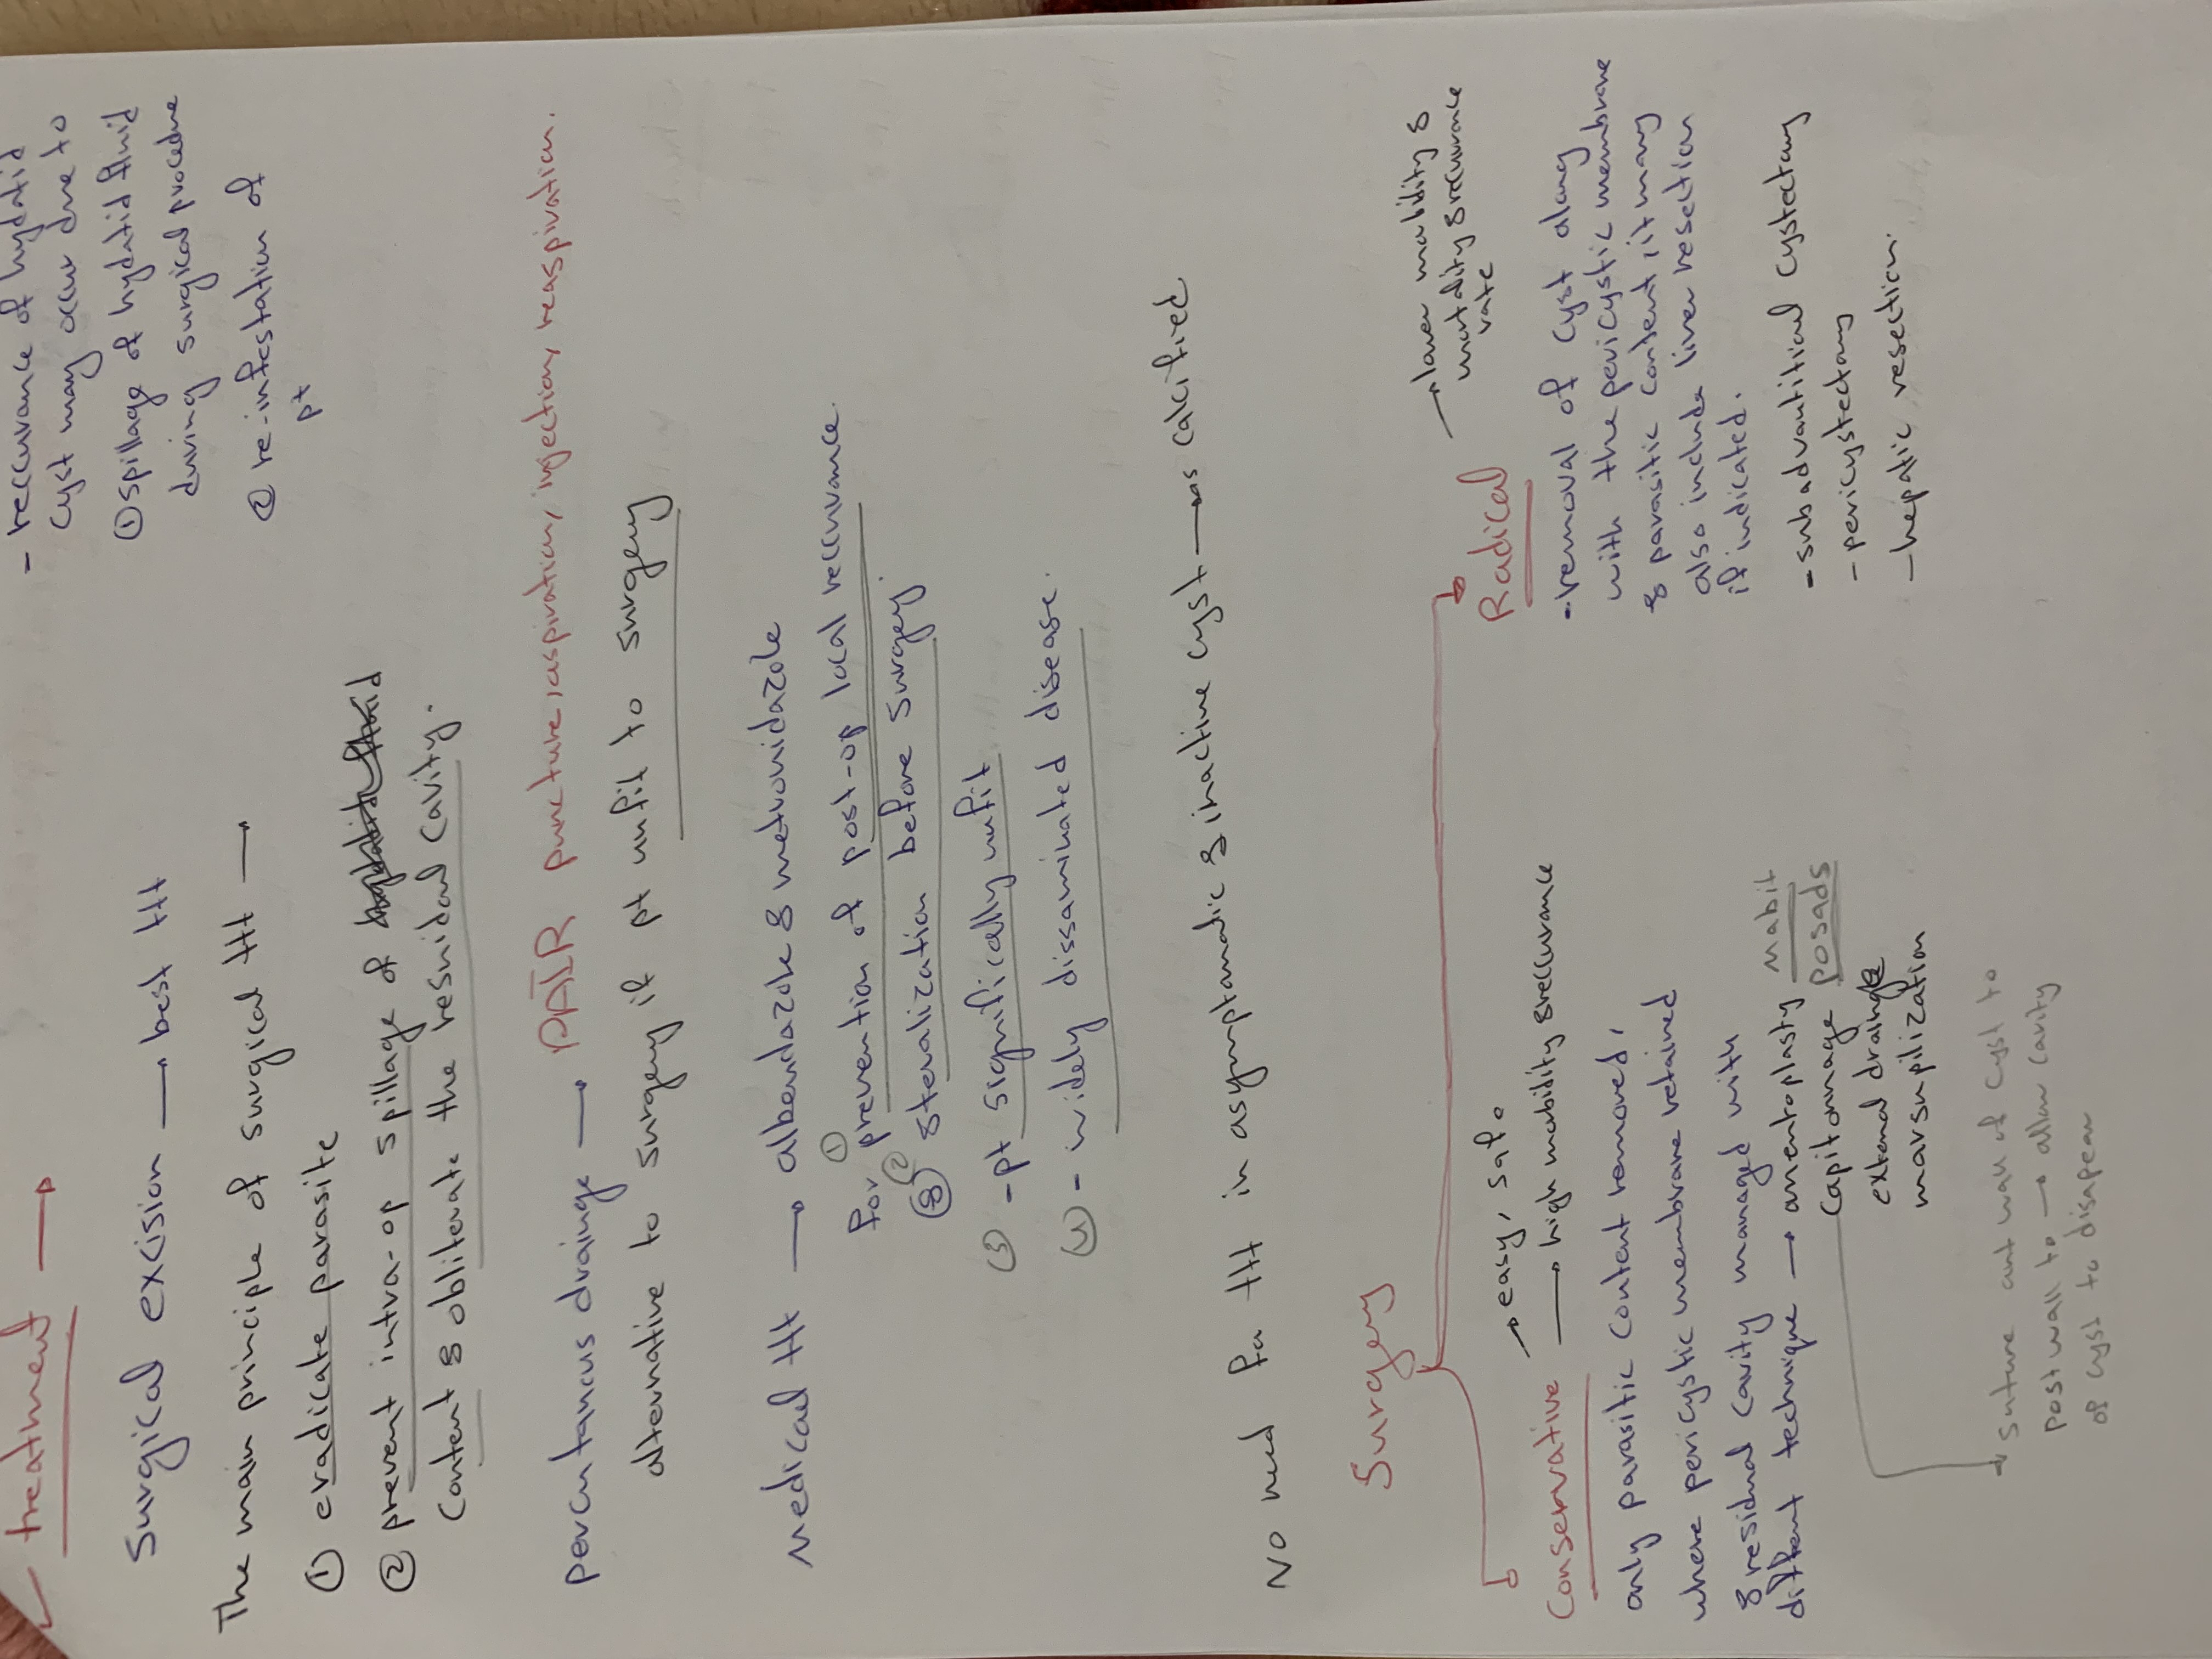 treatment →
- reccurance of hydatid
cyst may occur due to
① spillage of hydatid fluid
during surgical procedure
② re-infestation of
pt
Surgical excision → best ttt
The main principle of surgical ttt →
① eradicate parasite
② prevent intra-op spillage of
content & obliterate the residual cavity.
percutanous drainge → PAIR puncture, aspiration, injection, reaspiration.
alternative to surgery if pt unfit to surgery
Medical ttt → albendazole & metronidazole
for ① prevention of post-op local reccurance.
& ② steralization before surgery.
③ - pt significally unfit
④ - widely dissaminated disease.
No need for ttt in asymptamatic & inactive cyst → as calcified
Surgery
Conservative → easy, safe
→ high mobidity & reccurance
only parasitic content removed,
where pericystic membrane retained
& residual cavity managed with
different technique → omentoplasty
capitonnage
external drainge
marsupilization
mabit
posads
suture ant wall of cyst to
post wall to → allow cavity
of cyst to disapear
Radical → lower mobidity &
mortality & reccurance
rate
- removal of cyst along
with the pericystic membrane
& parasitic content, it may
also include liver resection
if indicated.
- subadvantitial cystectomy
- pericystectomy
- hepatic resection.